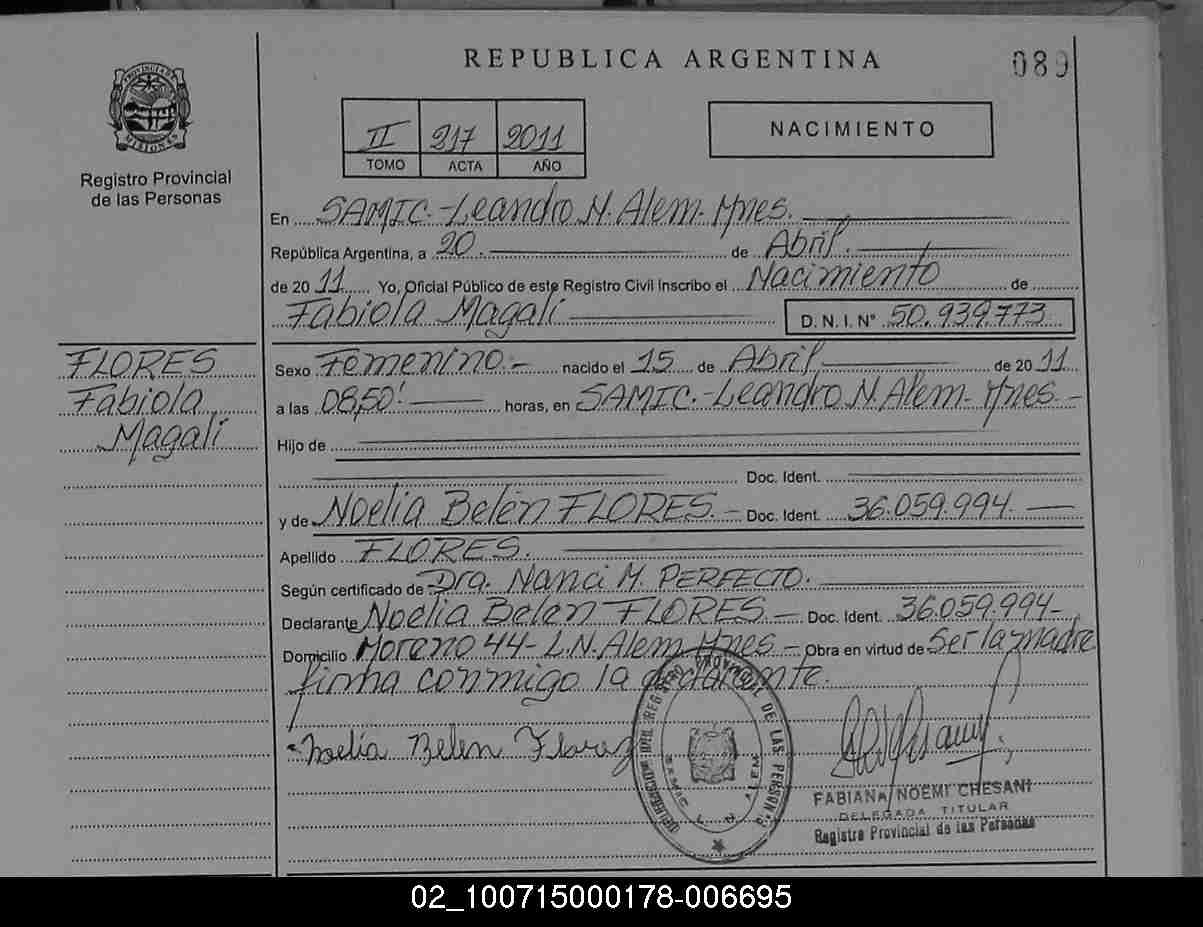 REPUBLICA ARGENTINA
089
PROVINCIA DE MISIONES
Registro Provincial
de las Personas
II 217 2011
TOMO ACTA AÑO
NACIMIENTO
En SAMIC.-Leandro N. Alem- Mnes.
República Argentina, a 20. de Abril.
de 2011 Yo, Oficial Público de este Registro Civil Inscribo el Nacimiento de
Fabiola Magalí D.N.I.N° 50.939.773
FLORES
Fabiola
Magalí
Sexo Femenino.- nacido el 15 de Abril, de 2011
a las 08,50' horas, en SAMIC.-Leandro N. Alem- Mnes.-
Hijo de
Doc. Ident.
y de Noelia Belén FLORES.- Doc. Ident. 36.059.994.
Apellido FLORES.
Según certificado de Dra. Nanci M. PERFECTO.
Declarante Noelia Belén FLORES.- Doc. Ident. 36.059.994-
Domicilio Moreno 44- L.N. Alem Mnes.- Obra en virtud de Ser la madre
firma conmigo la declarante.
Noelia Belen Florez
REGISTRO PROVINCIAL DE LAS PERSONAS
SAMIC L. N. ALEM
FABIANA NOEMI CHESANI
DELEGADA TITULAR
Registro Provincial de las Personas
02_100715000178-006695